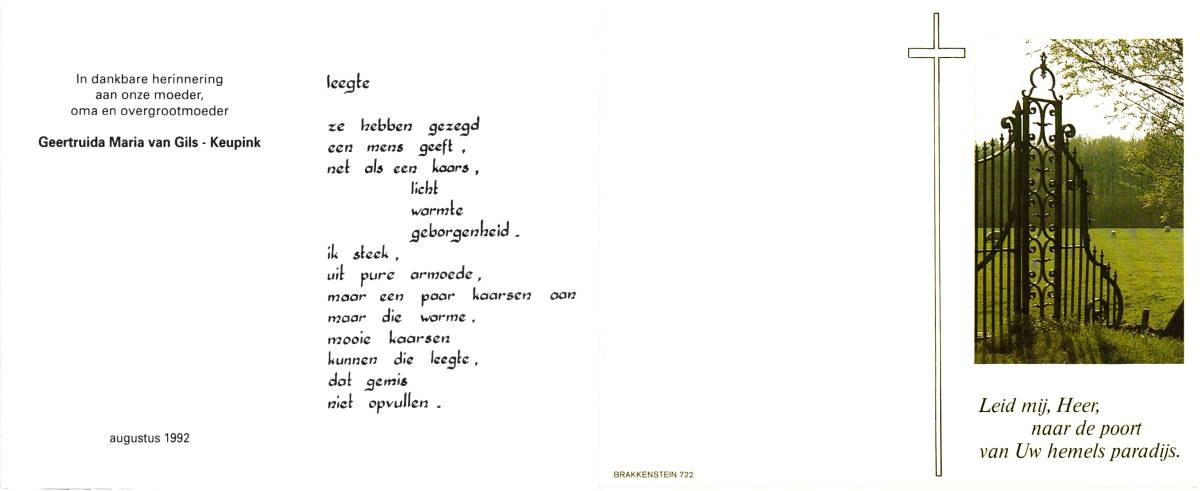 In dankbare herinnering
aan onze moeder,
oma en overgrootmoeder
Geertruida Maria van Gils - Keupink
augustus 1992
leegte
ze hebben gezegd
een mens geeft,
net als een kaars,
licht
warmte
geborgenheid.
ik steek,
uit pure armoede,
maar een paar kaarsen aan
maar die warme,
mooie kaarsen
kunnen die leegte,
dat gemis
niet opvullen.
BRAKKENSTEIN 722
Leid mij, Heer,
naar de poort
van Uw hemels paradijs.